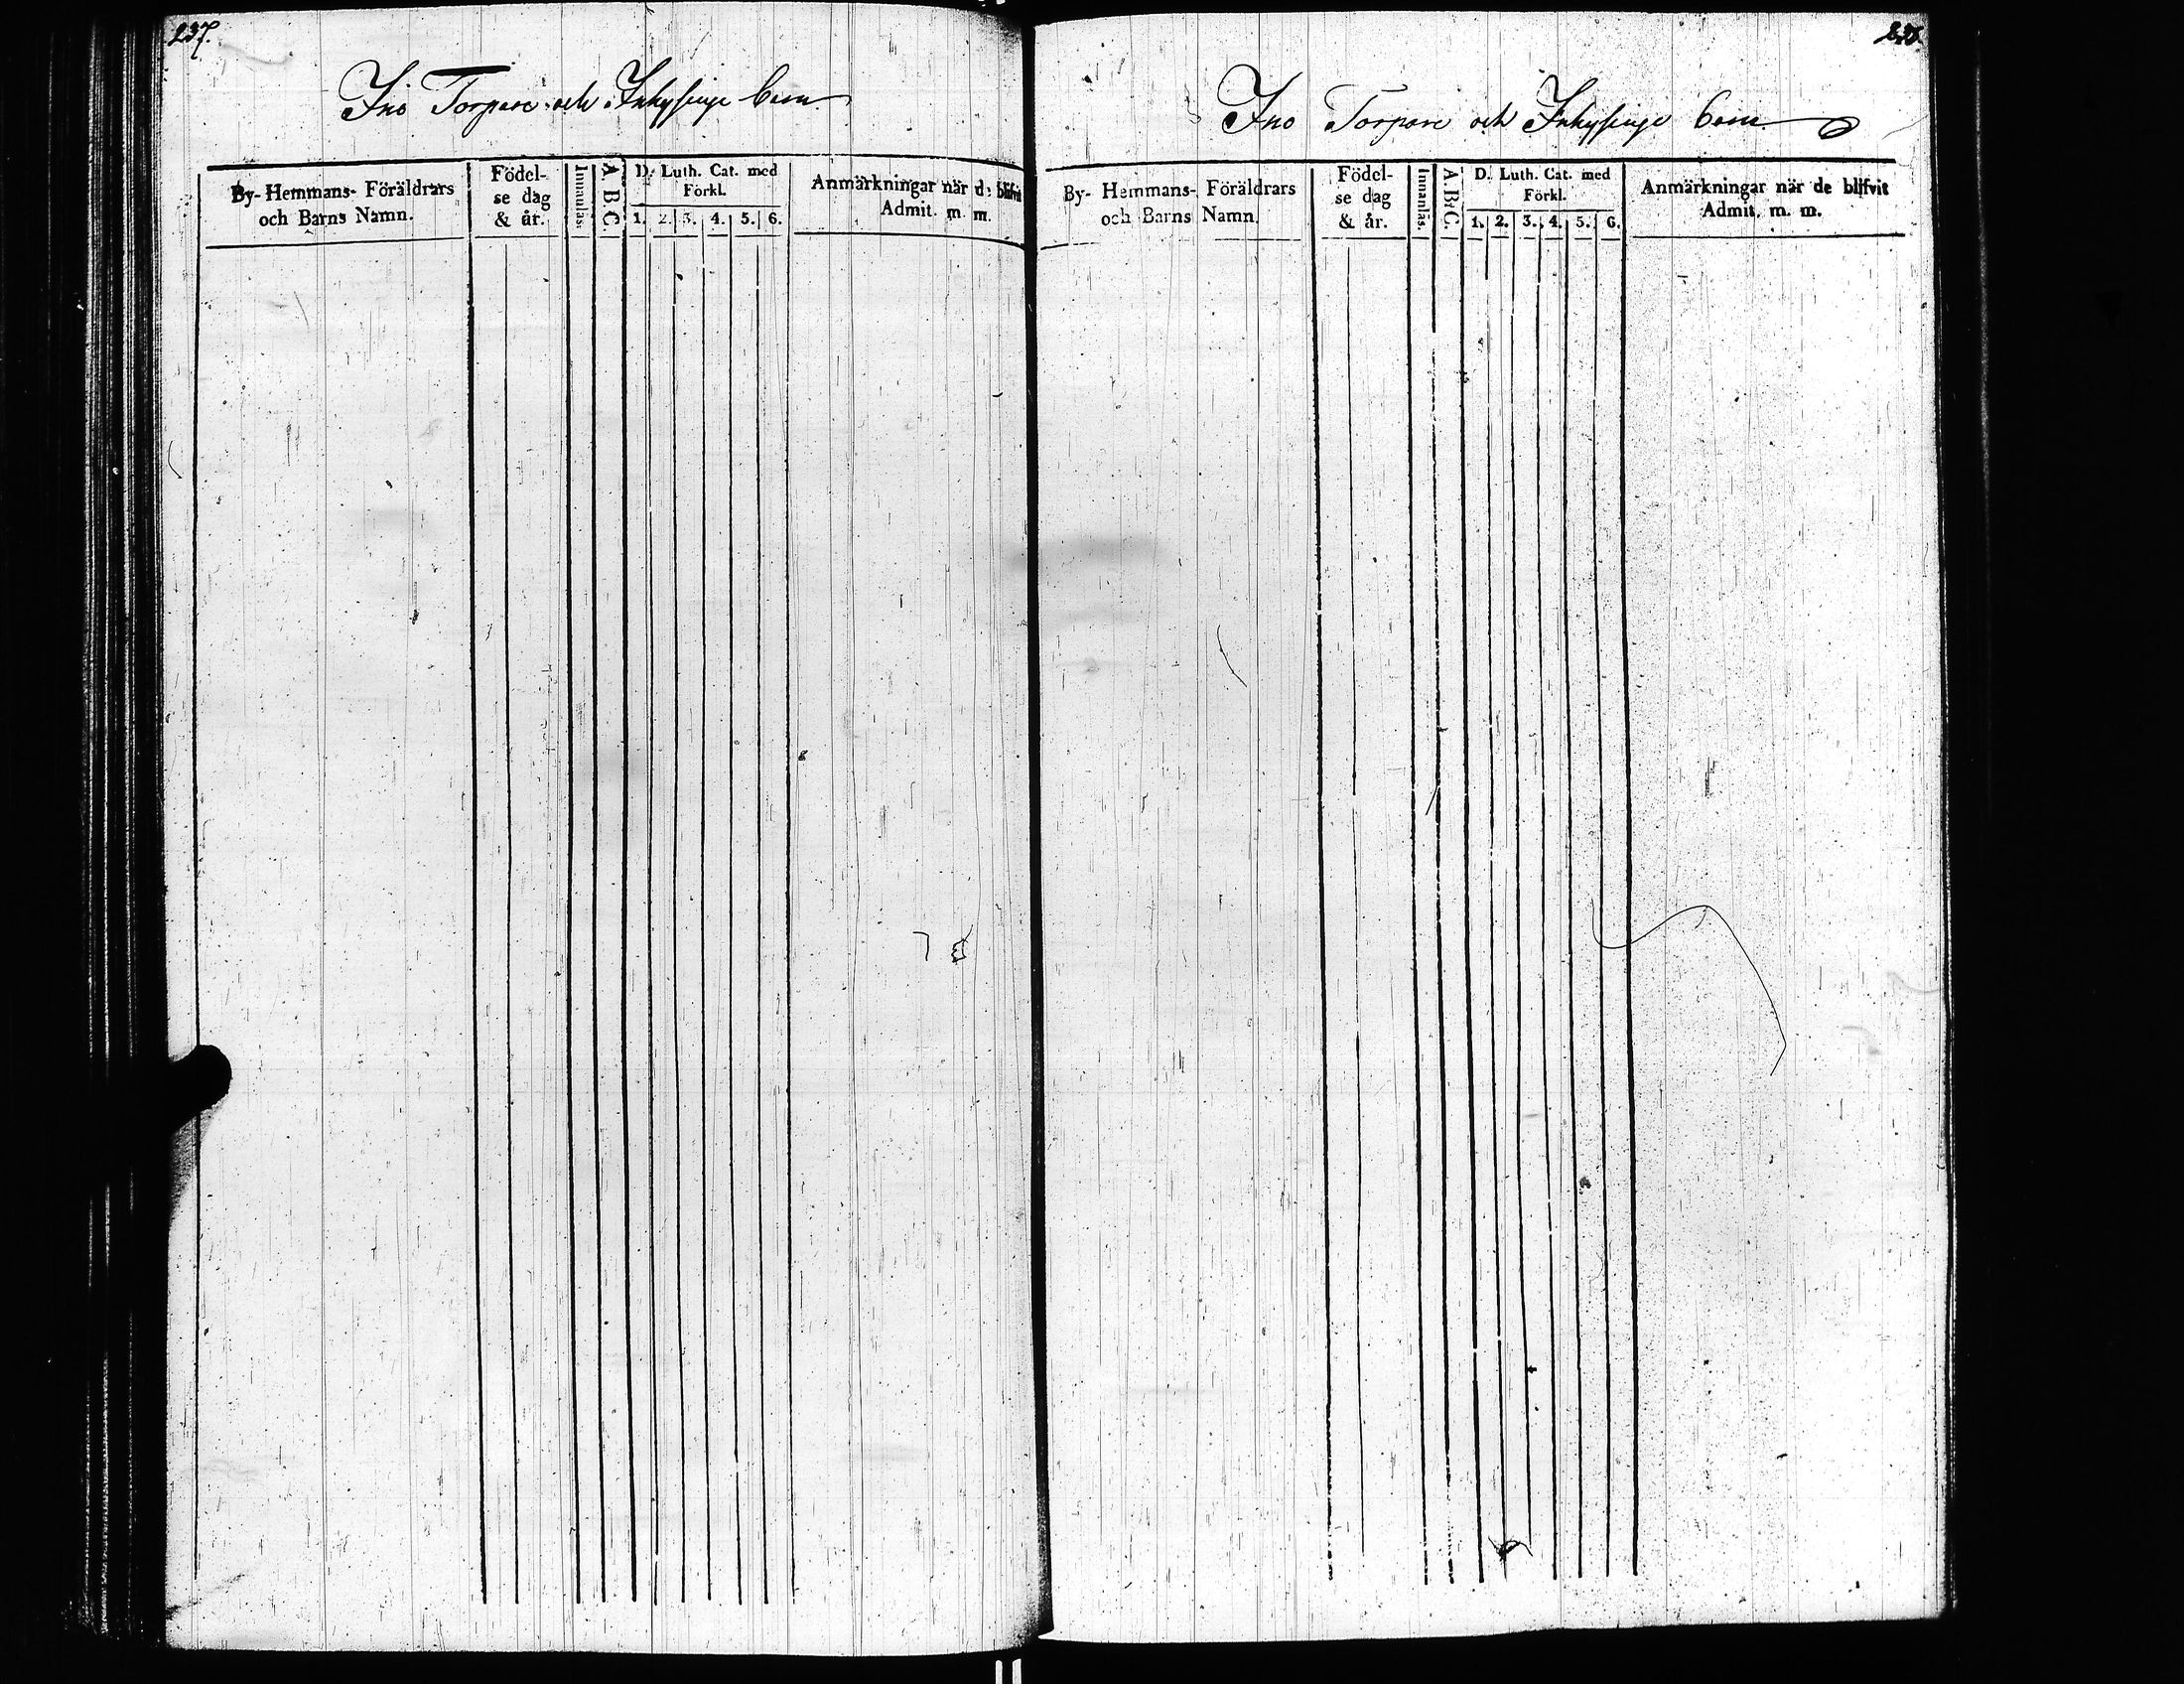 237.
Ino Torpare och Inhysinge barn
By- Hemmans- Föräldrars
och Barns Namn.
Födel-
se dag
& år.
Innanläs.
A. B. C.
D. Luth. Cat. med
Förkl.
1. 2. 3. 4. 5. 6.
Anmärkningar när de blifvit
Admit. m. m.
Ino Torpare och Inhysinge barn
By- Hemmans- Föräldrars
och Barns Namn.
Födel-
se dag
& år.
Innanläs.
A. B. C.
D. Luth. Cat. med
Förkl.
1. 2. 3. 4. 5. 6.
Anmärkningar när de blifvit
Admit. m. m.